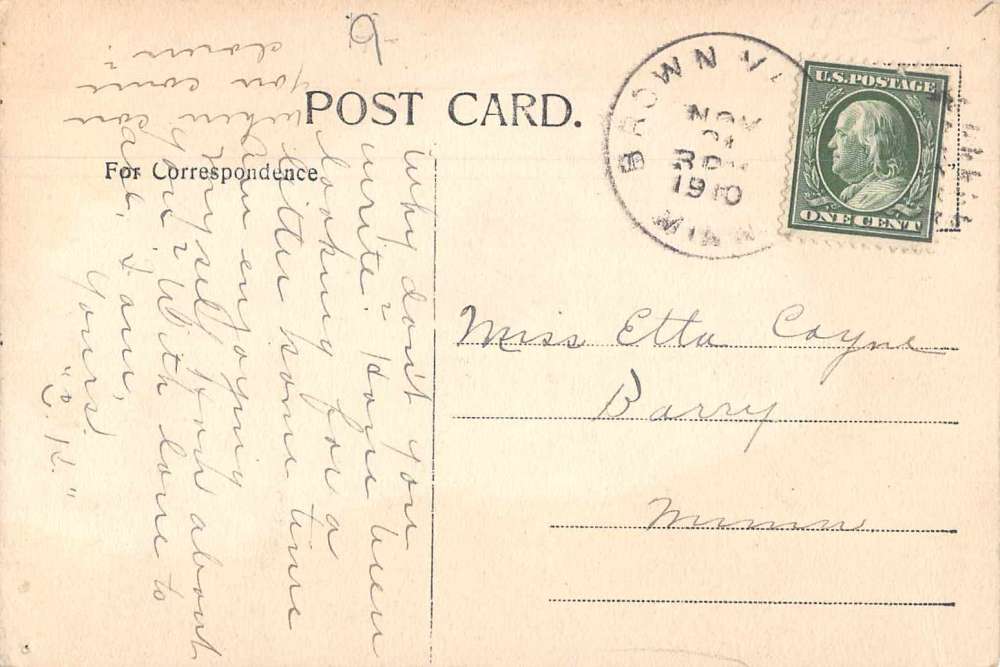 POST CARD.
For Correspondence
BROWN VA
NOV
21
3 PM
1910
MINN
U.S. POSTAGE
ONE CENT
Miss Etta Coyne
Barry
Minn
Why don't you
write? Have been
looking for a
letter some time
Am enjoying
myself. How about
you? With love to
all, I am,
Yours!
"C. K."
When can
you come
down?